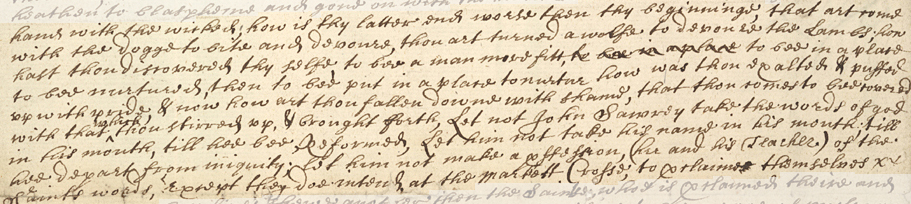 heathen to blaspheme and gone on with
hand with the wicked; how is thy latter end worse then thy beginninge, that art come
with the dogge to bite and devoure, thou art turned a wolfe to devoure the Lambs; how
hast thou discovered thy selfe to bee a man more fitt to bee in a place to bee in a place
to bee nurtured, then to bee put in a place to nurtur how was thou exalted & puffed
up with pride, & now how art thou fallen downe with shame, that thou comes to bee covered
with that which thou stirred up, & brought forth, Let not John Sawrey take the words of god
in his mouth, till hee bee Reformed, Let him not take his name in his mouth, till
hee depart from iniquity; Let him not make a pffession, (hee and his Teacher) of the
Saints words, except they doe intend at the Markett Crosse, to pclaime themselves
then the Saints, who is pclaimed theire and